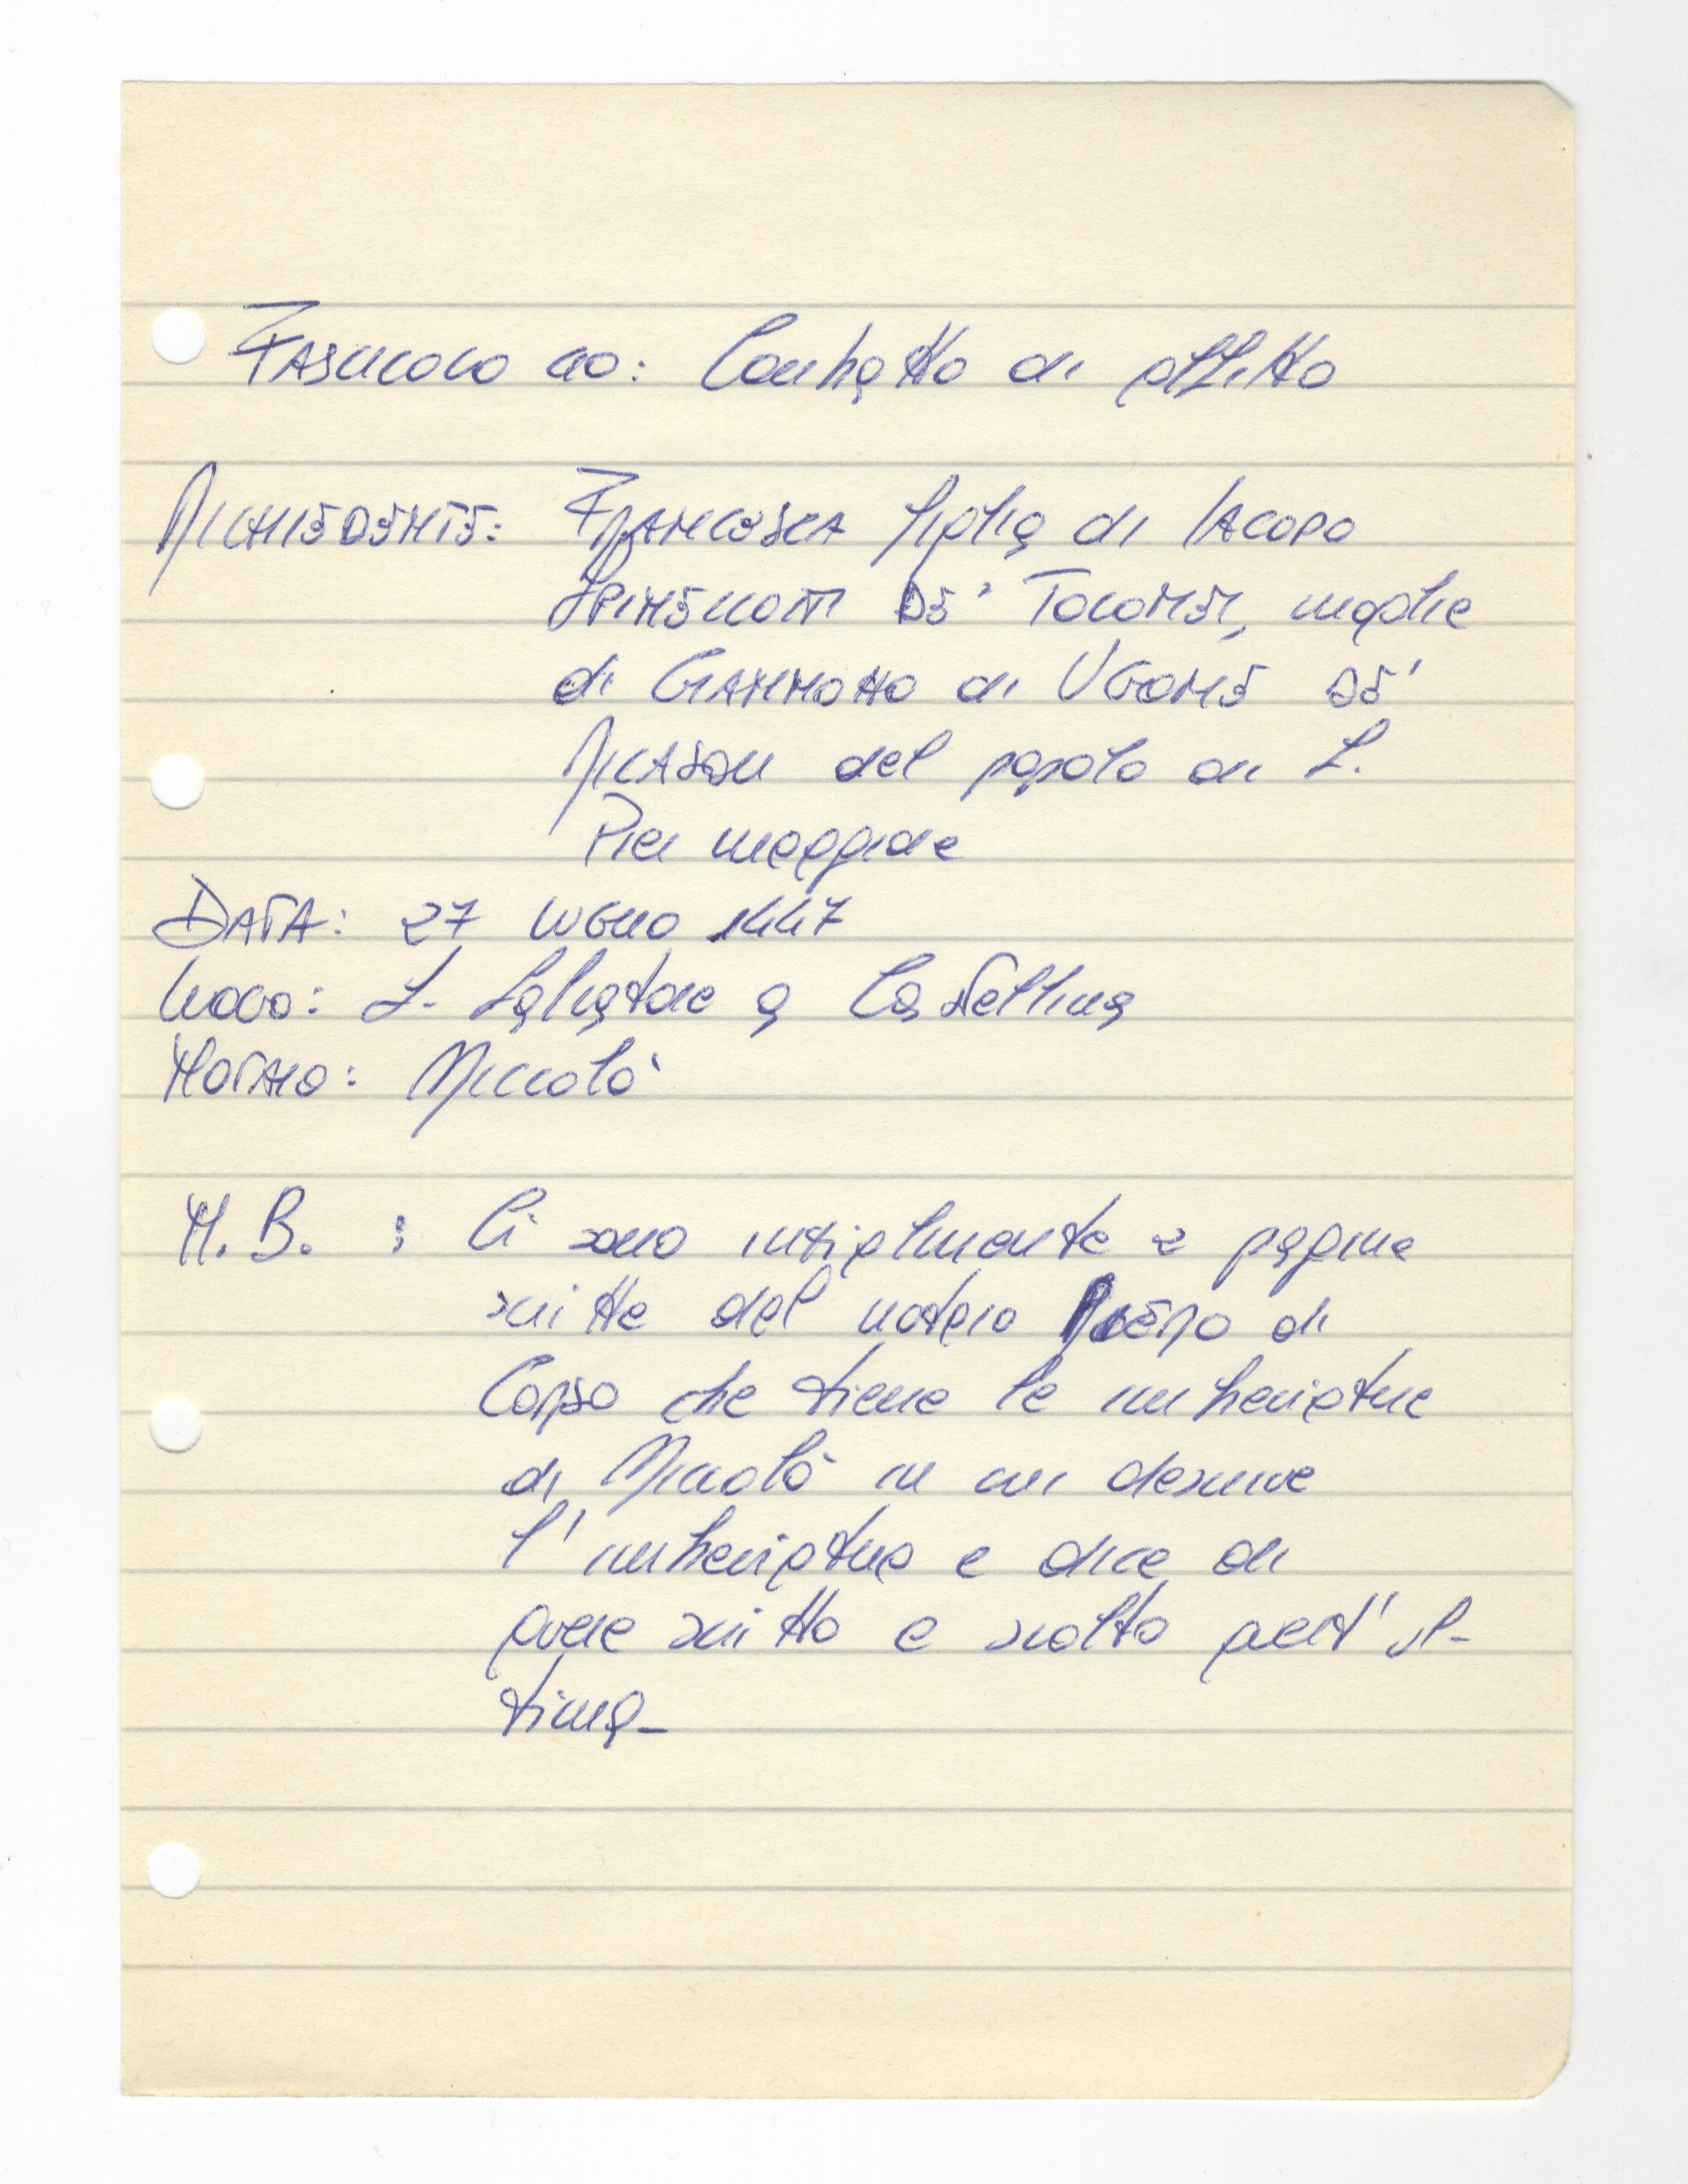 FASCICOLO 20: Contratto di affitto
RICHIEDENTE: FRANCESCA figlia di IACOPO
SPINELLOTTI DE' TOLOMEI, moglie
di GIANNOtto di UGONE DE'
RICASOLI del popolo di S.
Pier maggiore
DATA: 27 LUGLIO 1447
LUOGO: S. Salvatore a Castellina
NOTAIO: Niccolò
N. B. : Ci sono inizialmente 2 pagine
scritte dal notaio PIERO di
Corso che tiene le imbreviature
di Niccolò in cui descrive
l'imbreviatura e dice di
avere scritto e sciolto quest'ul-
tima-